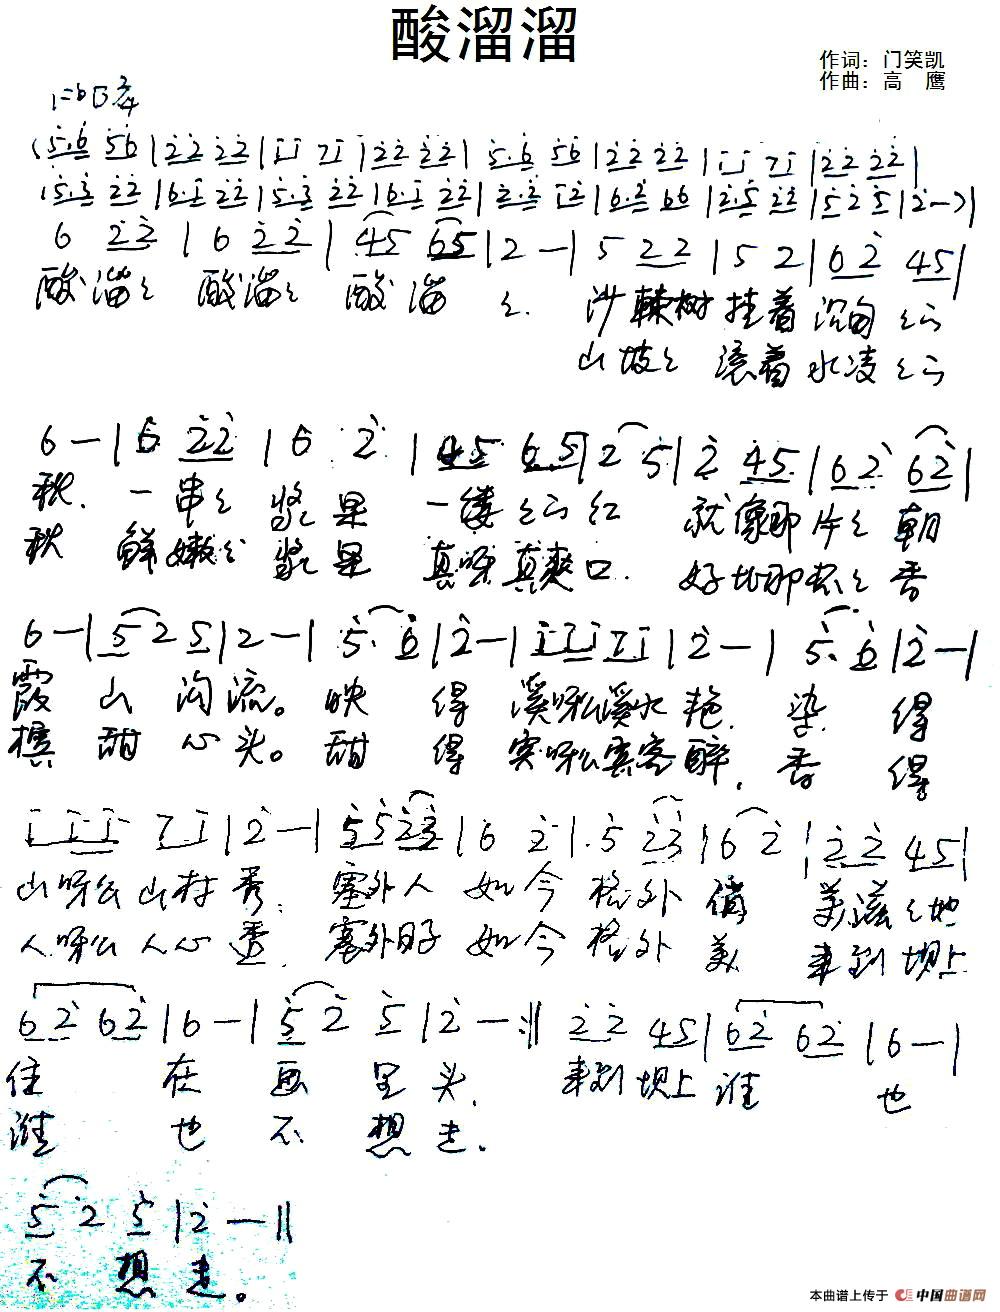 酸溜溜
作词：门笑凯
作曲：高　鹰
1=bB 2/4
(5.6 56|22 22|11 71|22 22|5.6 56|22 22|11 71|22 22|
5.3 22|6.1 22|5.3 22|6.1 22|2.2 12|6.2 66|2.5 22|5 2 5|2—)|
6 22|6 22|45 65|2 —|5 22|5 2|62 45|
酸溜々 酸溜々 酸溜々. 沙棘树 挂着 沉甸々的
山坡々 滚着 水凌々的
6—|6 22|6 2|45 65|2 5|2 45|62 62|
秋. 一串々 浆果 一缕々的红 就像那片々朝
秋 鲜嫩々 浆果 真呀真爽口. 好比那杯々香
6—|5 2 5|2—|5. 6|2—|111 71|2—|5. 6|2—|
霞 山沟流。映得 溪呀么溪水艳. 染得
槟 甜心头。甜得 宾呀么宾客醉，香得
111 71|2—|5523|6 2|5 23|6 2|22 45|
山呀么山村秀； 塞外人 如今格外俏 美滋々地
人呀么人心透. 塞外日子 如今格外美 来到坝上
62 62|6—|5 2 5|2—:|| 22 45|62 62|6—|
住在画里头. 来到坝上谁也
谁也不想走.
5 2 5|2—||
不想走。
本曲谱上传于 中国曲谱网